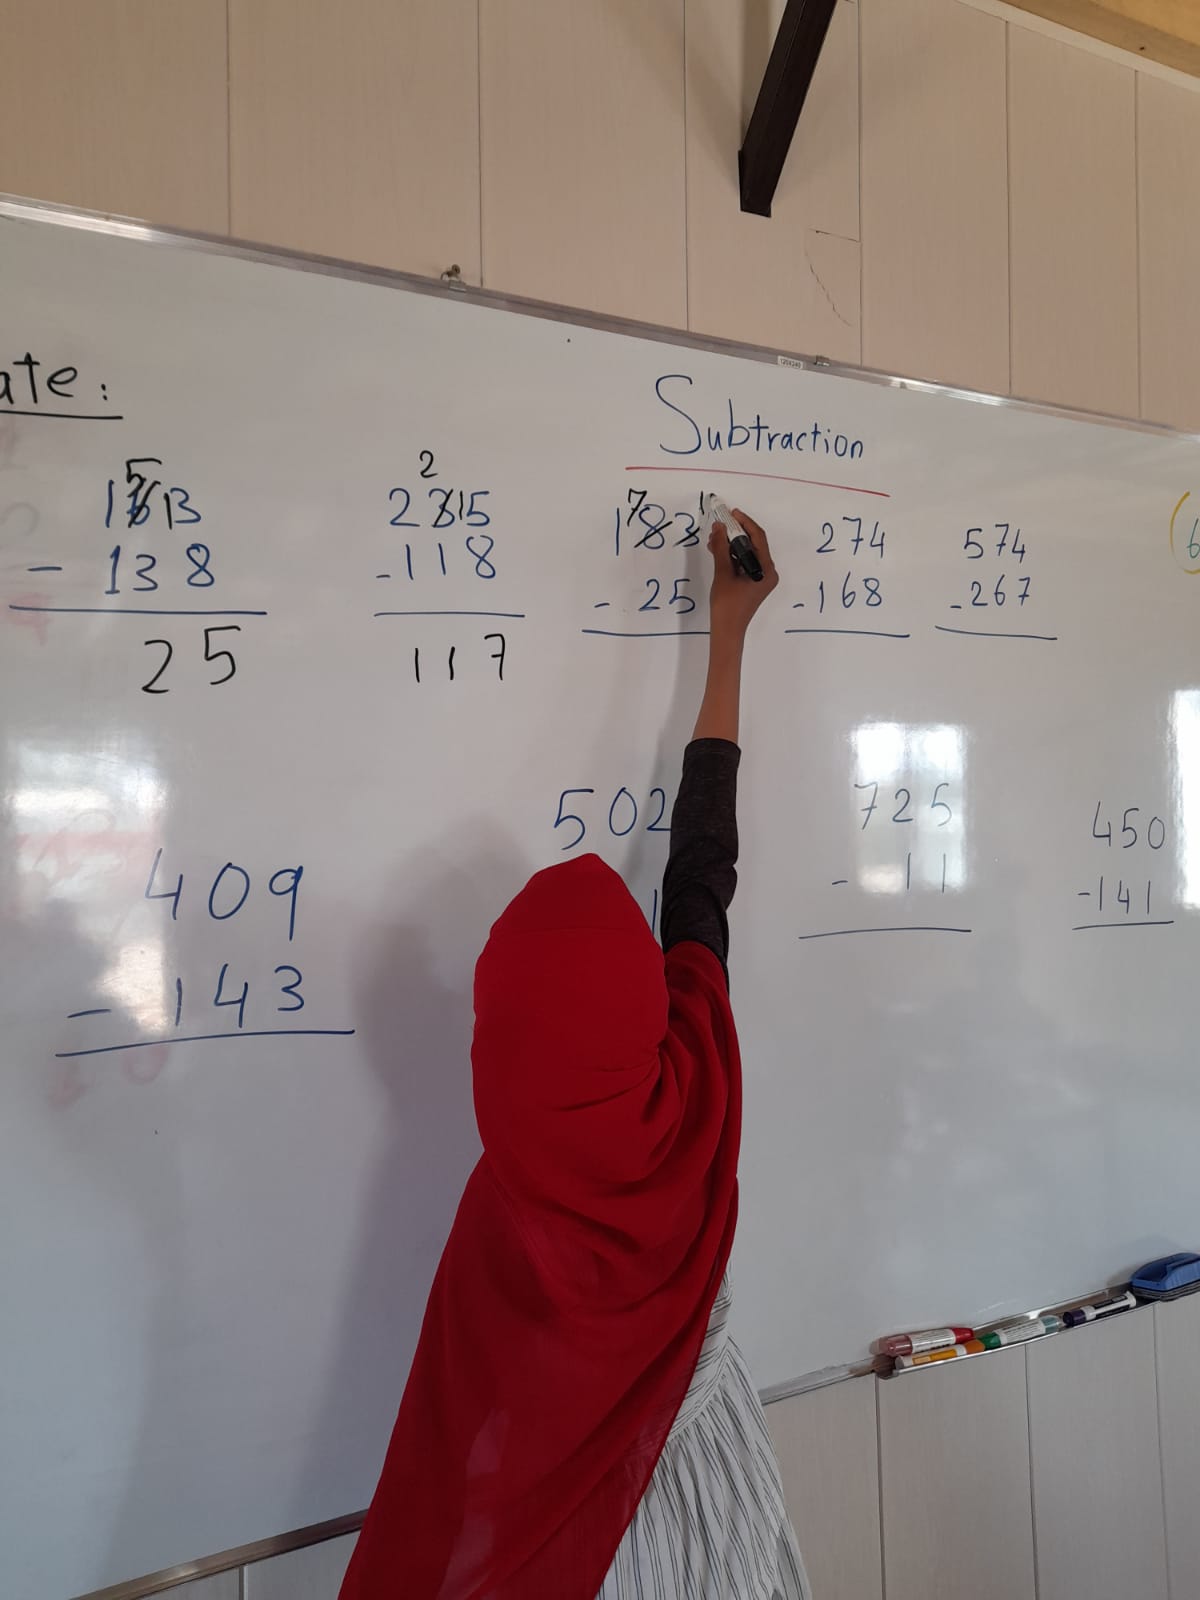 ate:
Subtraction
5
1613
- 138
25
2
2315
-118
117
7 1
183
- 25
274
-168
574
-267
6
409
- 143
502
1
725
- 11
450
-141